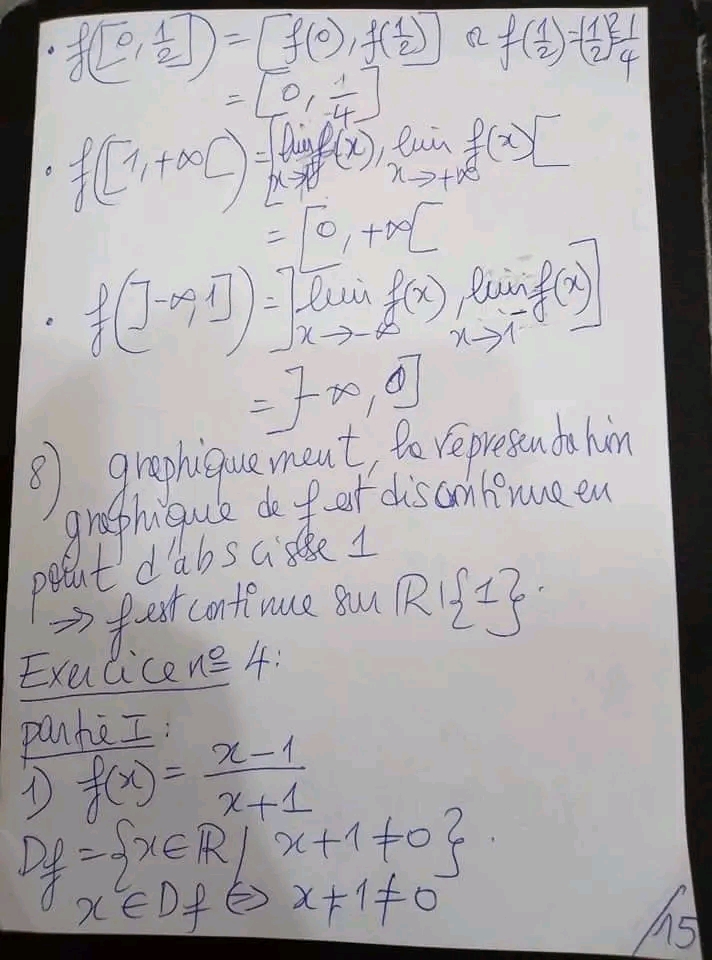 • f([0, 1/2]) = [f(0), f(1/2)] a f(1/2) = (1/2)² = 1/4
= [0, 1/4]
• f([1, +∞[) = [lim f(x), lim f(x)[
x→1⁺ x→+∞
= [0, +∞[
• f(]-∞, 1]) = ]lim f(x), lim f(x)]
x→-∞ x→1⁻
= ]-∞, ]
8) graphiquement, la représentation
graphique de f est discontinue en
point d'abscisse 1
⇒ f est continue sur ℝ\{1}.
Exercice nº 4:
partie I:
1) f(x) = (x-1)/(x+1)
Df = {x ∈ ℝ / x+1 ≠ 0}.
x ∈ Df ⇔ x+1 ≠ 0
/15